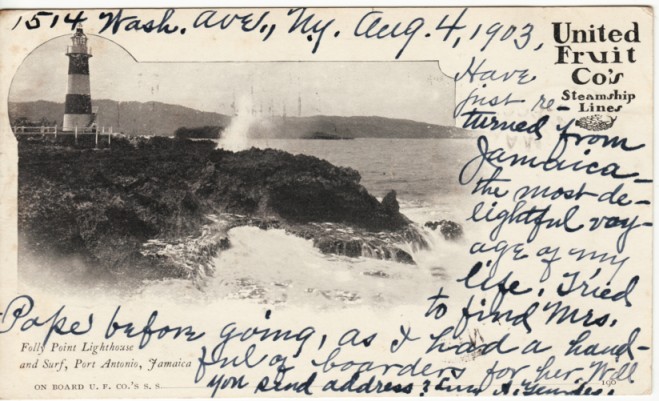 1514 Wash. Ave., Ny. Aug. 4, 1903,
United
Fruit
Co's
Steamship
Lines
Have
just re-
turned from
Jamaica-
the most de-
lightful voy-
age of my
life. Tried
to find Mrs.
Pope before going, as I had a hand-
ful of boarders for her. Will
you send address?
Folly Point Lighthouse
and Surf, Port Antonio, Jamaica
ON BOARD U. F. CO.'S S. S.
190